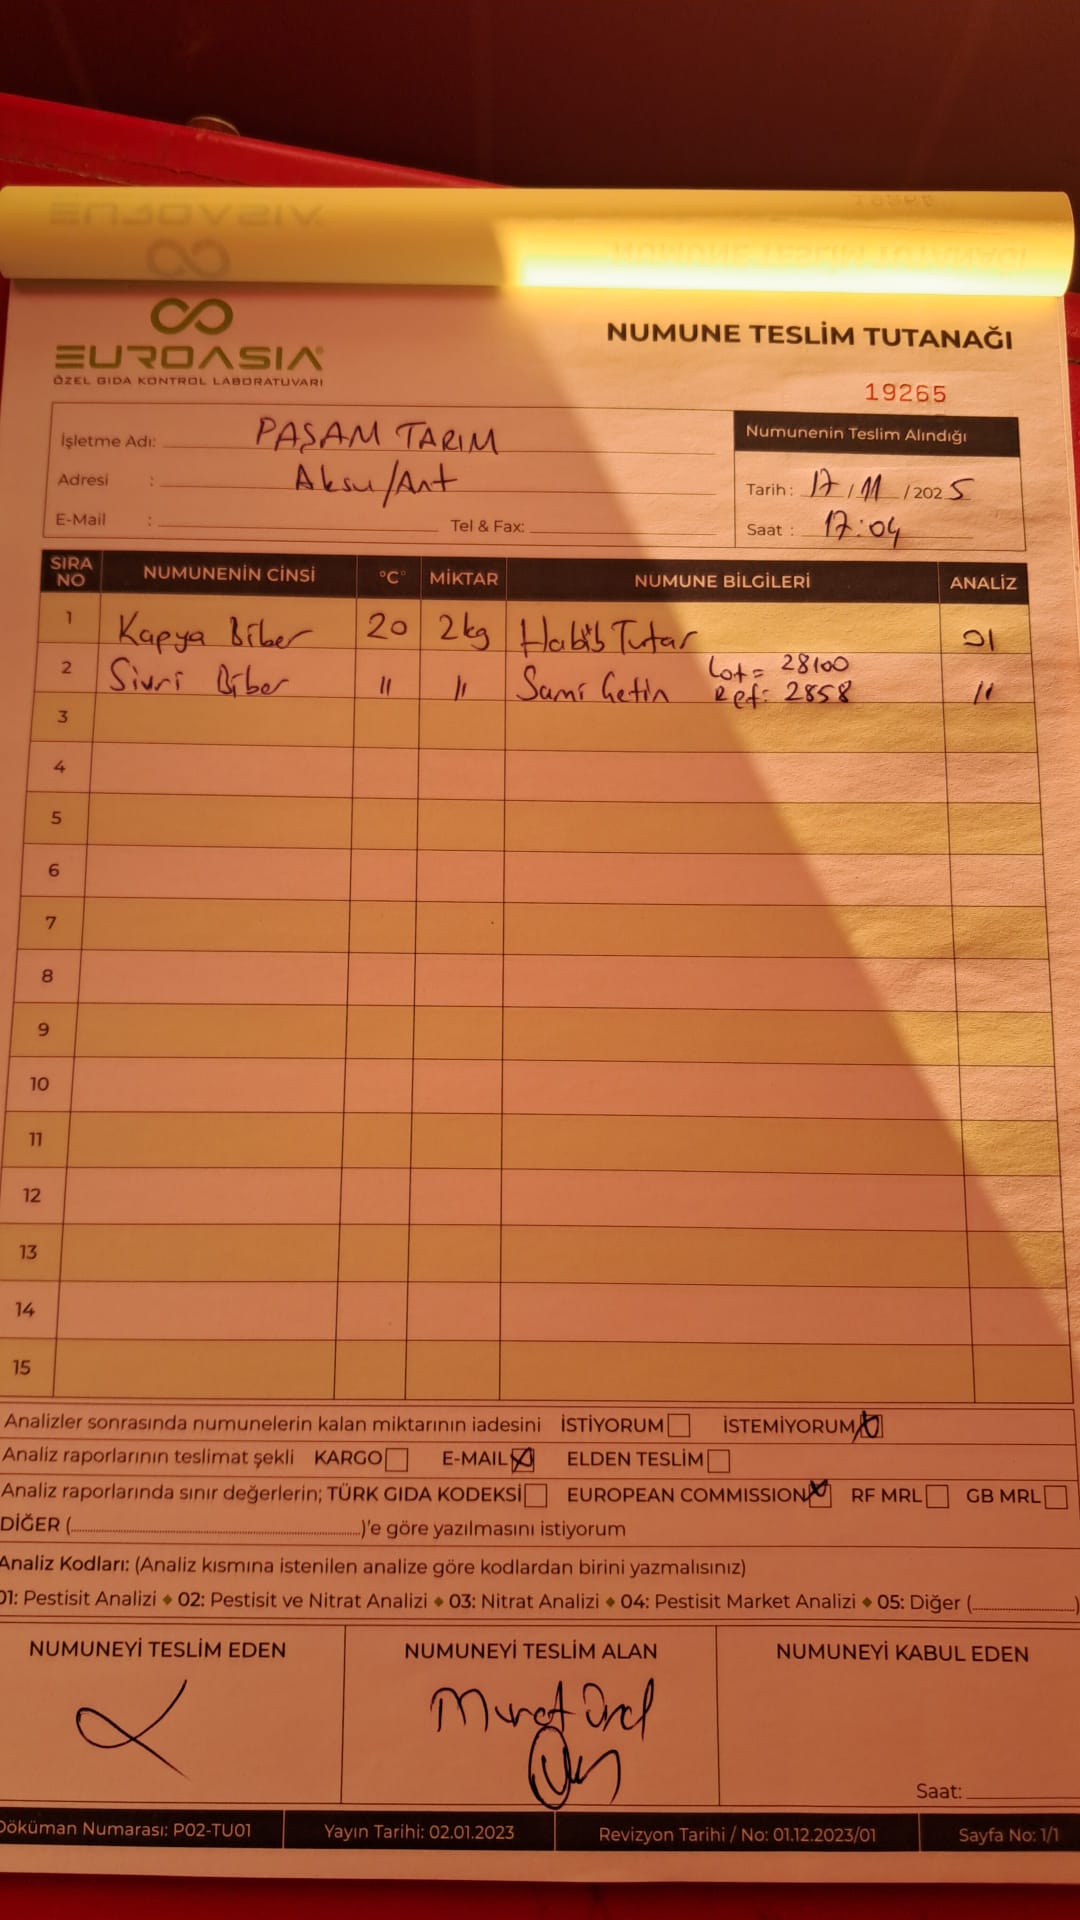 EUROASIA
ÖZEL GIDA KONTROL LABORATUVARI
NUMUNE TESLİM TUTANAĞI
19265
İşletme Adı: PAŞAM TARIM
Adresi : Aksu/Ant
E-Mail : Tel & Fax:
Numunenin Teslim Alındığı
Tarih: 17/11/2025
Saat : 17:04
SIRA NO NUMUNENİN CİNSİ °C° MİKTAR NUMUNE BİLGİLERİ ANALİZ
1 Kapya Biber 20 2kg Habib Tutar 01
2 Sivri Biber " " Sami Çetin Lot= 28100 Ref: 2858 "
3
4
5
6
7
8
9
10
11
12
13
14
15
Analizler sonrasında numunelerin kalan miktarının iadesini İSTİYORUM İSTEMİYORUM
Analiz raporlarının teslimat şekli KARGO E-MAIL ELDEN TESLİM
Analiz raporlarında sınır değerlerin; TÜRK GIDA KODEKSİ EUROPEAN COMMISSION RF MRL GB MRL
DİĞER (....................)'e göre yazılmasını istiyorum
Analiz Kodları: (Analiz kısmına istenilen analize göre kodlardan birini yazmalısınız)
01: Pestisit Analizi ◆ 02: Pestisit ve Nitrat Analizi ◆ 03: Nitrat Analizi ◆ 04: Pestisit Market Analizi ◆ 05: Diğer (....................)
NUMUNEYİ TESLİM EDEN NUMUNEYİ TESLİM ALAN NUMUNEYİ KABUL EDEN
Murat
Saat:
Döküman Numarası: P02-TU01 Yayın Tarihi: 02.01.2023 Revizyon Tarihi / No: 01.12.2023/01 Sayfa No: 1/1